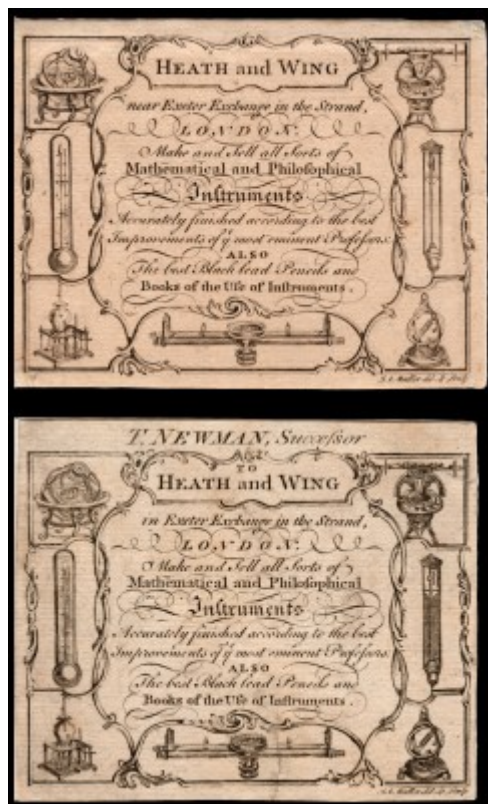 HEATH and WING
near Exeter Exchange in the Strand,
LONDON.
Make and Sell all Sorts of
Mathematical and Philoſophical
Inſtruments
Accurately finiſhed according to the best
Improvements of yᵉ most eminent Profeſsors.
ALSO
The best Black lead Pencils and
Books of the Uſe of Inſtruments.
T. NEWMAN, Succeſsor
TO
HEATH and WING
in Exeter Exchange in the Strand,
LONDON.
Make and Sell all Sorts of
Mathematical and Philoſophical
Inſtruments
Accurately finiſhed according to the best
Improvements of yᵉ most eminent Profeſsors.
ALSO
The best Black lead Pencils and
Books of the Uſe of Inſtruments.